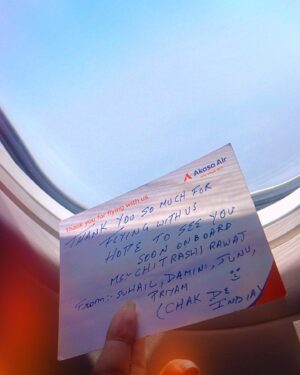 Akasa Air
Thank you for flying with us
THANK YOU SO MUCH FOR
FLYING WITH US
HOPE TO SEE YOU
SOON ONBOARD
MS~CHITRASHI RAWAT
From:- SUHAIL, DAMINI, JUNU,
PRIYAM
(CHAK DE
INDIA)